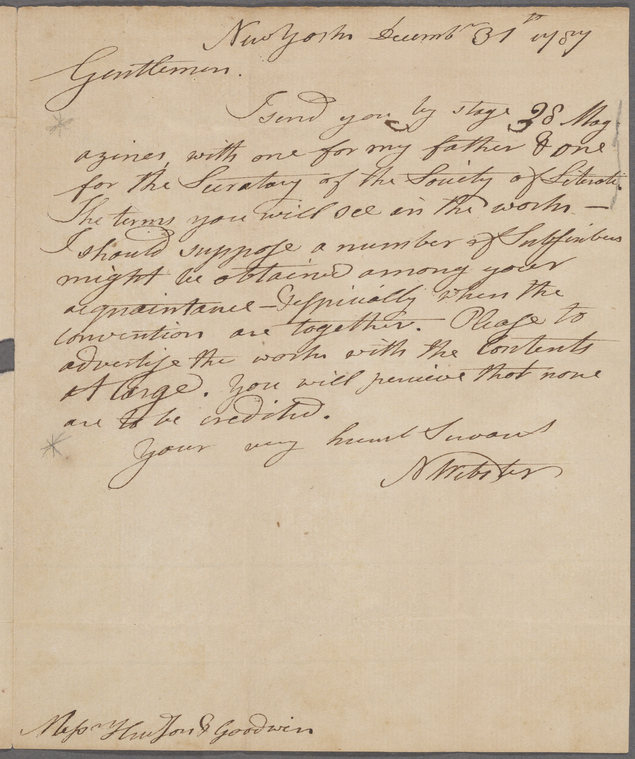 New York Decembr 31st 1787
Gentlemen.
I send you by stage 38 Mag-
azines, with one for my father & one
for the Secretary of the Society of Literati.
The terms you will see in the work —
I should suppose a number of Subscribers
might be obtained among your
acquaintance — & especially when the
convention are together. Please to
advertise the work with the Contents
at large. You will perceive that none
are to be credited.
Your very huml Servant
N Webster
Messrs Hudson & Goodwin